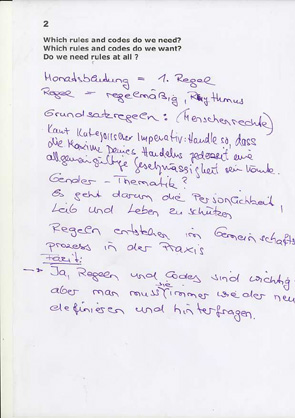 2
Which rules and codes do we need?
Which rules and codes do we want?
Do we need rules at all ?
Monatsblutung = 1. Regel
Regel = regelmäßig, Rhythmus
Grundsatzregeln: (Menschenrechte)
Kant Kategorischer Imperativ: Handle so, dass
die Maxime Deines Handelns jederzeit eine
allgemeingültige Gesetzmässigkeit sein könnte.
Gender - Thematik?
Es geht darum die Persönlichkeit,
Leib und Leben zu schützen
Regeln entstehen im Gemeinschafts
prozess in der Praxis
Fazit:
→ Ja, Regeln und Codes sind wichtig
aber man muss sie immer wieder neu
definieren und hinterfragen.